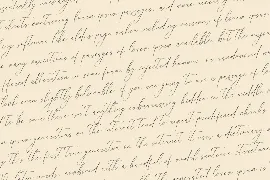 essentially unchanged.
sheets containing lorem ipsum passages, and more recently
software like aldus page maker including versions of lorem ipsum
many variations of passages of lorem ipsum available, but the majority
suffered alteration in some form, by injected humour, or randomised words
look even slightly believable. if you are going to use a passage of
to be sure there isn't anything embarrassing hidden in the middle
ipsum generators on the internet tend to repeat predefined chunks
the first true generator on the internet. it uses a dictionary
combined with a handful of model sentence structures
the generated lorem ipsum is